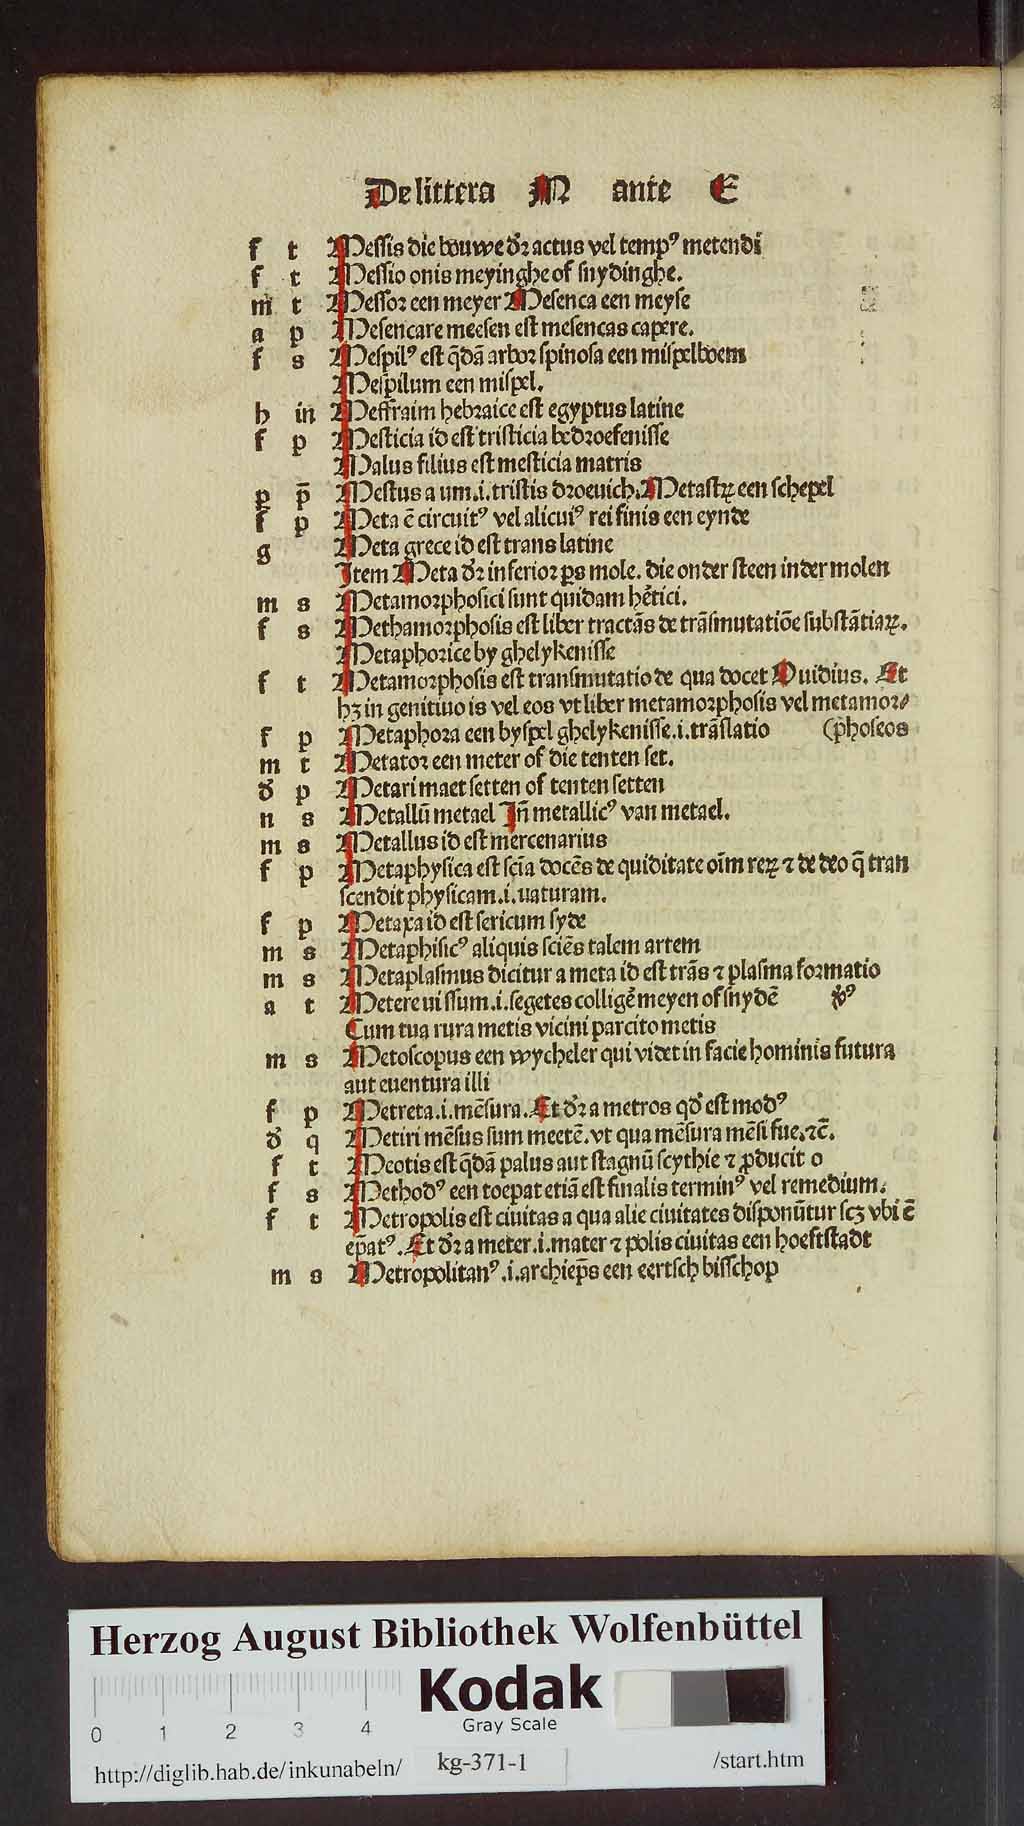 De littera M ante E
f t Messis die bouwe dr̄ actus vel temp⁹ metendi
f t Messio onis meyinghe of snydinghe.
m t Messor een meyer Mesenca een meyse
a p Mesencare meesen est mesencas capere.
f s Mespil⁹ est q̄dā arbor spinosa een mispelboem
Mespilum een mispel.
h in Meffraim hebraice est egyptus latine
f p Mesticia id est tristicia bedroefenisse
Malus filius est mesticia matris
p p̄ Mestus a um .i. tristis droeuich. Metastꝝ een schepel
f p Meta ē circuit⁹ vel alicui⁹ rei finis een eynde
g Meta grece id est trans latine
Item Meta dr̄ inferior ꝑs mole. die onder steen in der molen
m s Metamorphosici sunt quidam hētici.
f s Methamorphosis est liber tractās de trāsmutatiōe substātiaꝝ.
Metaphorice by ghelykenisse
f t Metamorphosis est transmutatio de qua docet Ouidius. Et
hꝫ in genitiuo is vel eos vt liber metamorphosis vel metamor⸗
f p Metaphora een byspel ghelykenisse .i. trāslatio (phoseos
m t Metator een meter of die tenten set.
d̄ p Metari maet setten of tenten setten
n s Metallū metael Iñ metallic⁹ van metael.
m s Metallus id est mercenarius
f p Metaphysica est scīa docēs de quiditate oīm reꝝ ⁊ de deo q̄ tran
scendit physicam .i. uaturam.
f p Metaxa id est sericum syde
m s Metaphisic⁹ aliquis sciēs talem artem
m s Metaplasmus dicitur a meta id est trās ⁊ plasma formatio
a t Metere ui ssum .i. segetes colligē meyen of snydē v̄⁹
Cum tua rura metis vicini parcito metis
m s Metoscopus een wycheler qui videt in facie hominis futura
aut euentura illi
f p Metreta .i. mēsura. Et dr̄ a metros qd̄ est mod⁹
d̄ q Metiri mēsus sum meetē. vt qua mēsura mēsi fue. ⁊c̄.
f t Meotis est q̄dā palus aut stagnū scythie ⁊ ꝓducit o
f s Method⁹ een toepat etiā est finalis termin⁹ vel remedium.
f t Metropolis est ciuitas a qua alie ciuitates disponūtur scꝫ vbi ē
ep̄at⁹. Et dr̄ a meter .i. mater ⁊ polis ciuitas een hoeftstadt
m s Metropolitan⁹ .i. archiep̄s een eertsch bisschop
Herzog August Bibliothek Wolfenbüttel
Kodak
Gray Scale
0 1 2 3 4
http://diglib.hab.de/inkunabeln/ kg-371-1 /start.htm